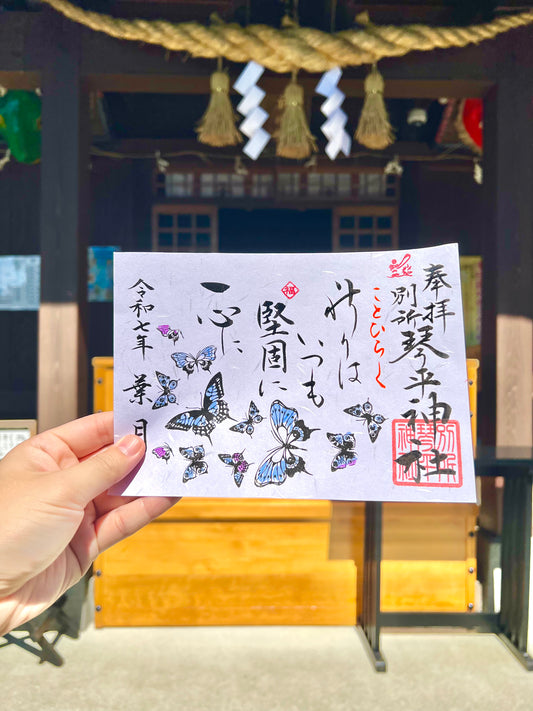 奉拝
別所琴平神社
ことひらく
祈りは
いつも
堅固に
一心に
令和七年 葉月
福